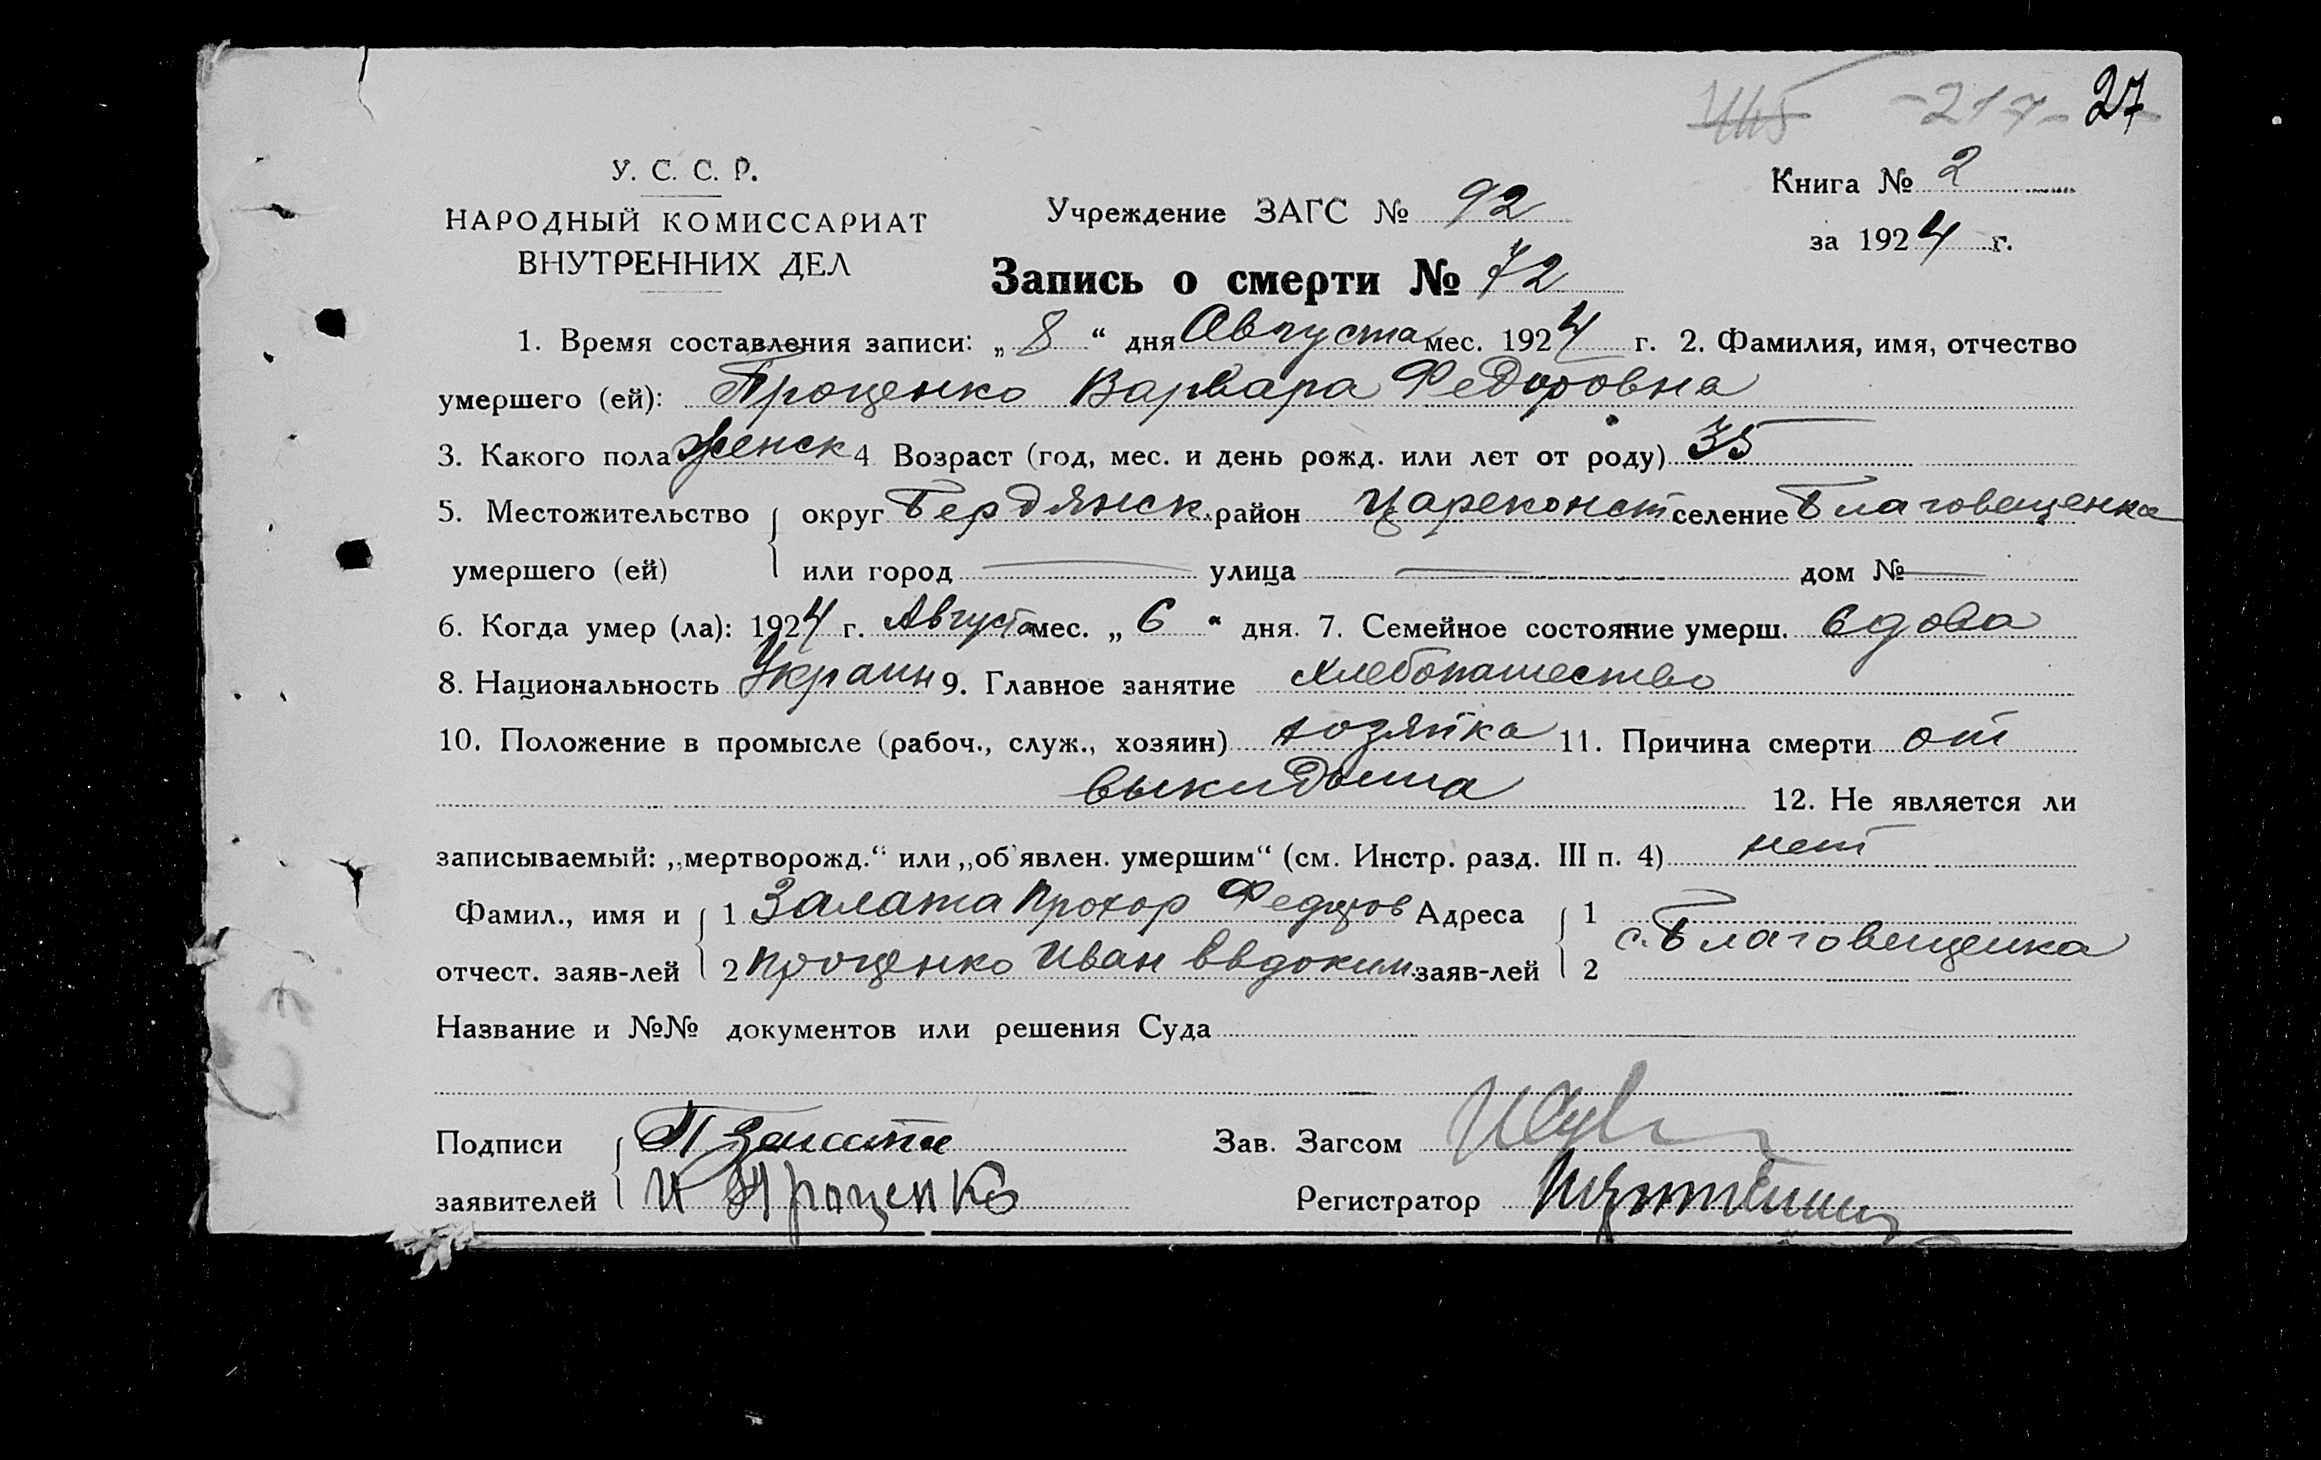 -217- 27
У. С. С. Р.
НАРОДНЫЙ КОМИССАРИАТ
ВНУТРЕННИХ ДЕЛ
Учреждение ЗАГС № 92
Книга № 2
за 1924 г.
Запись о смерти № 72
1. Время составления записи: „8“ дня Августа мес. 1924 г. 2. Фамилия, имя, отчество
умершего (ей): Проценко Варвара Федоровна
3. Какого пола женск 4 Возраст (год, мес. и день рожд. или лет от роду) 35
5. Местожительство округ Бердянск. район Цареконст селение Благовещенка
умершего (ей) или город — улица — дом № —
6. Когда умер (ла): 1924 г. Августа мес. „6“ дня. 7. Семейное состояние умерш. вдова
8. Национальность Украин 9. Главное занятие хлебопашество
10. Положение в промысле (рабоч., служ., хозяин) хозяйка 11. Причина смерти от
выкидыша 12. Не является ли
записываемый: „мертворожд.“ или „об'явлен. умершим“ (см. Инстр. разд. III п. 4) нет
Фамил., имя и 1 Залата Прохор Федоров Адреса 1
с. Благовещенка
отчест. заяв-лей 2 Проценко Иван Евдоким. заяв-лей 2
Название и №№ документов или решения Суда
Подписи П Залата Зав. Загсом
заявителей И Проценко Регистратор